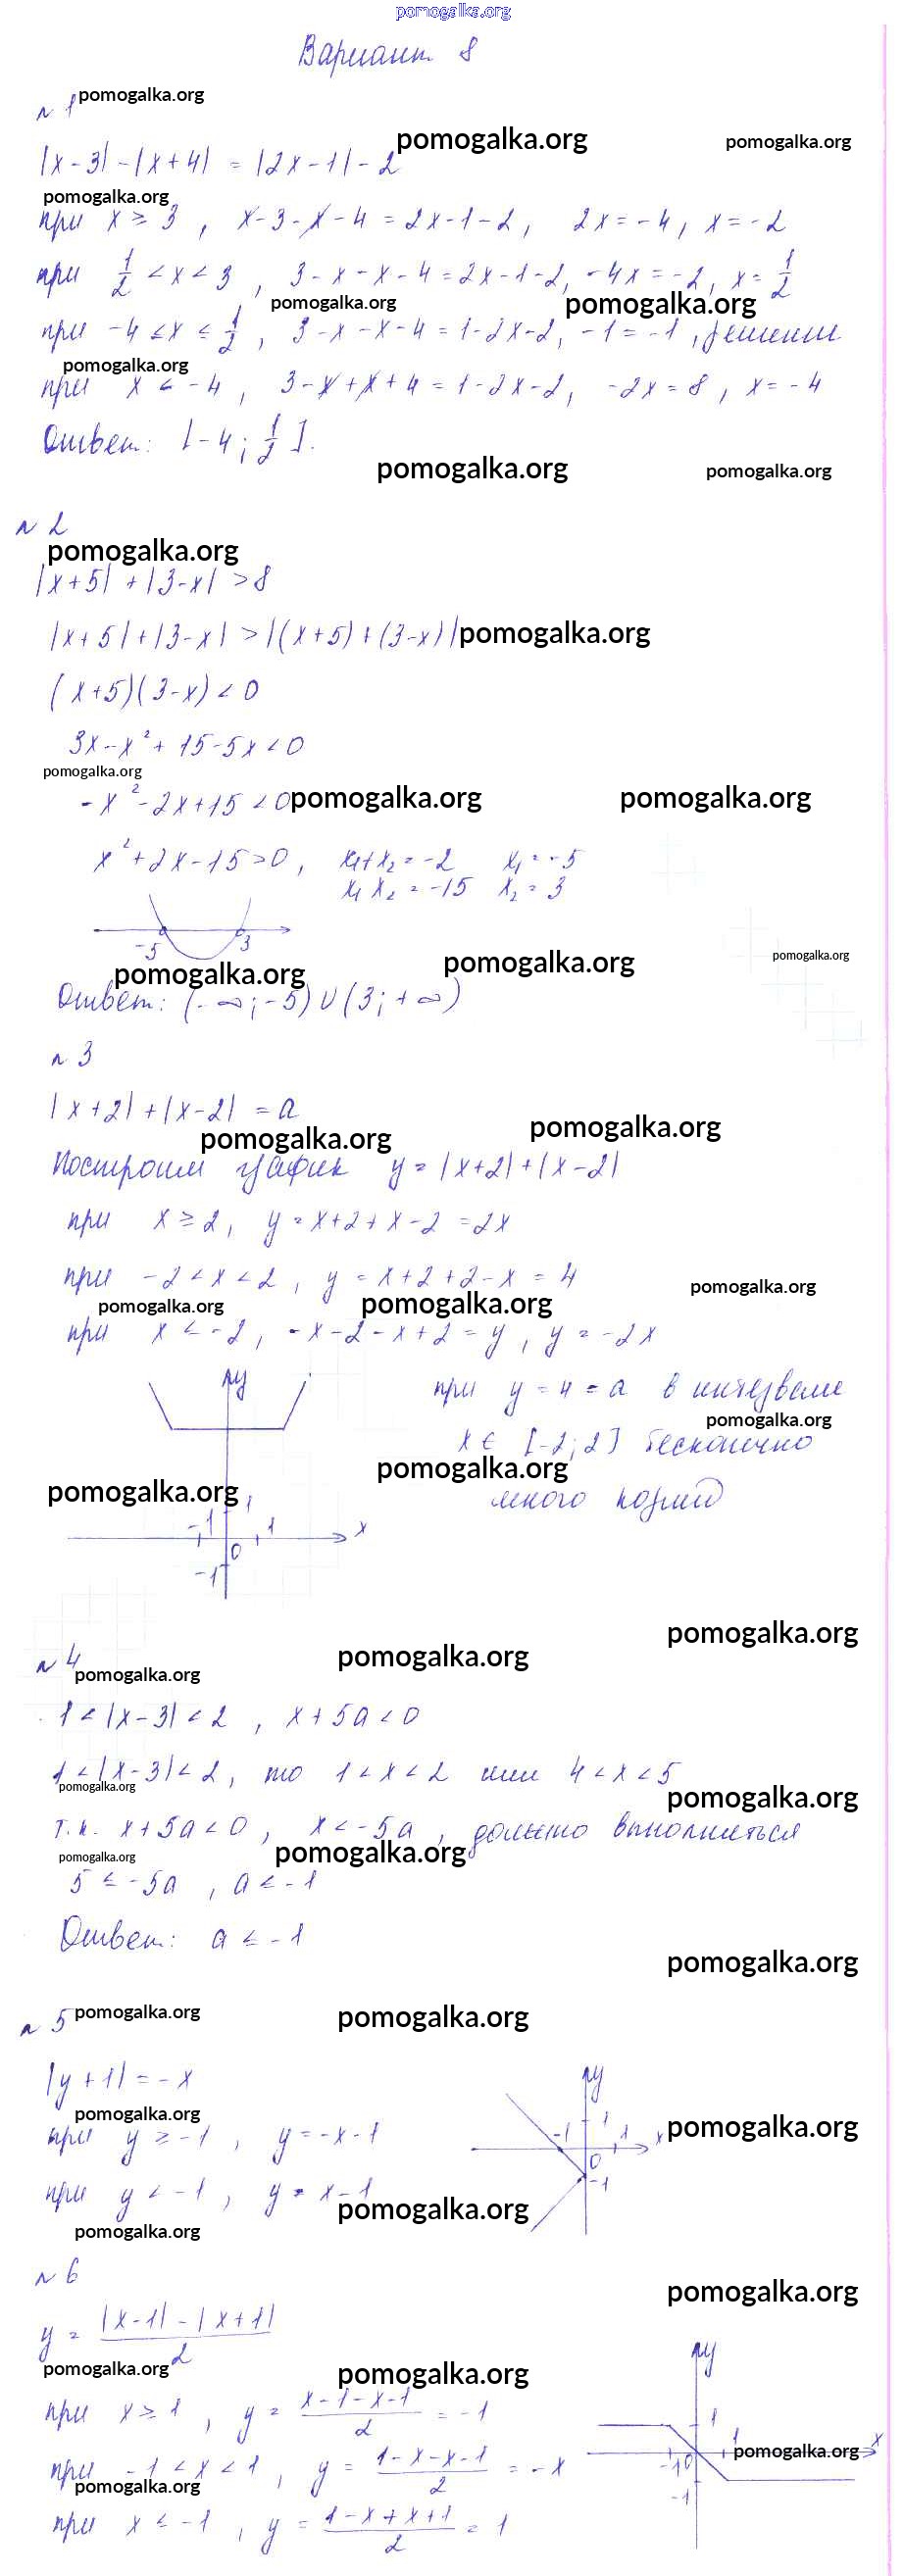 pomogalka.org
Вариант 8
pomogalka.org
№1
pomogalka.org
pomogalka.org
|x-3|-|x+4| = |2x-1|-2
pomogalka.org
при x ≥ 3, x-3-x-4=2x-1-2, 2x=-4, x=-2
при 1/2 < x < 3, 3-x-x-4=2x-1-2, -4x=-2, x=1/2
pomogalka.org
pomogalka.org
при -4 ≤ x ≤ 1/2, 3-x-x-4=1-2x-2, -1=-1, решений
pomogalka.org
при x < -4, 3-x+x+4=1-2x-2, -2x=8, x=-4
Ответ: [-4; 1/2].
pomogalka.org
pomogalka.org
№2
pomogalka.org
|x+5|+|3-x|>8
|x+5|+|3-x|>|(x+5)+(3-x)|
pomogalka.org
(x+5)(3-x)<0
3x-x²+15-5x<0
pomogalka.org
-x²-2x+15<0
pomogalka.org
pomogalka.org
x²+2x-15>0, x₁+x₂=-2 x₁=-5
x₁x₂=-15 x₂=3
-5 3
pomogalka.org
pomogalka.org
pomogalka.org
Ответ: (-∞;-5)∪(3;+∞)
№3
|x+2|+|x-2|=a
pomogalka.org
pomogalka.org
Построим график y=|x+2|+|x-2|
при x ≥ 2, y=x+2+x-2=2x
при -2<x<2, y=x+2+2-x=4
pomogalka.org
pomogalka.org
pomogalka.org
при x ≤ -2, -x-2-x+2=y, y=-2x
y
при y=4=a в интервале
pomogalka.org
x ∈ [-2;2] бесконечно
pomogalka.org
много корней
pomogalka.org
1
-1 1 x
0
-1
pomogalka.org
pomogalka.org
№4
pomogalka.org
1<|x-3|<2, x+5a<0
1<|x-3|<2, то 1<x<2 или 4<x<5
pomogalka.org
pomogalka.org
т.к. x+5a<0, x<-5a, должно выполняться
pomogalka.org
pomogalka.org
5 ≤ -5a, a ≤ -1
Ответ: a ≤ -1
pomogalka.org
№5
pomogalka.org
pomogalka.org
|y+1|=-x
pomogalka.org
при y ≥ -1, y=-x-1
y
1
-1 1 x
0
-1
pomogalka.org
при y < -1, y=x-1
pomogalka.org
pomogalka.org
№6
pomogalka.org
y = |x-1|-|x+1| / 2
pomogalka.org
pomogalka.org
при x ≥ 1, y = x-1-x-1 / 2 = -1
y
1
1 x
-1 0
-1
pomogalka.org
при -1<x<1, y = 1-x-x-1 / 2 = -x
pomogalka.org
при x ≤ -1, y = 1-x+x+1 / 2 = 1